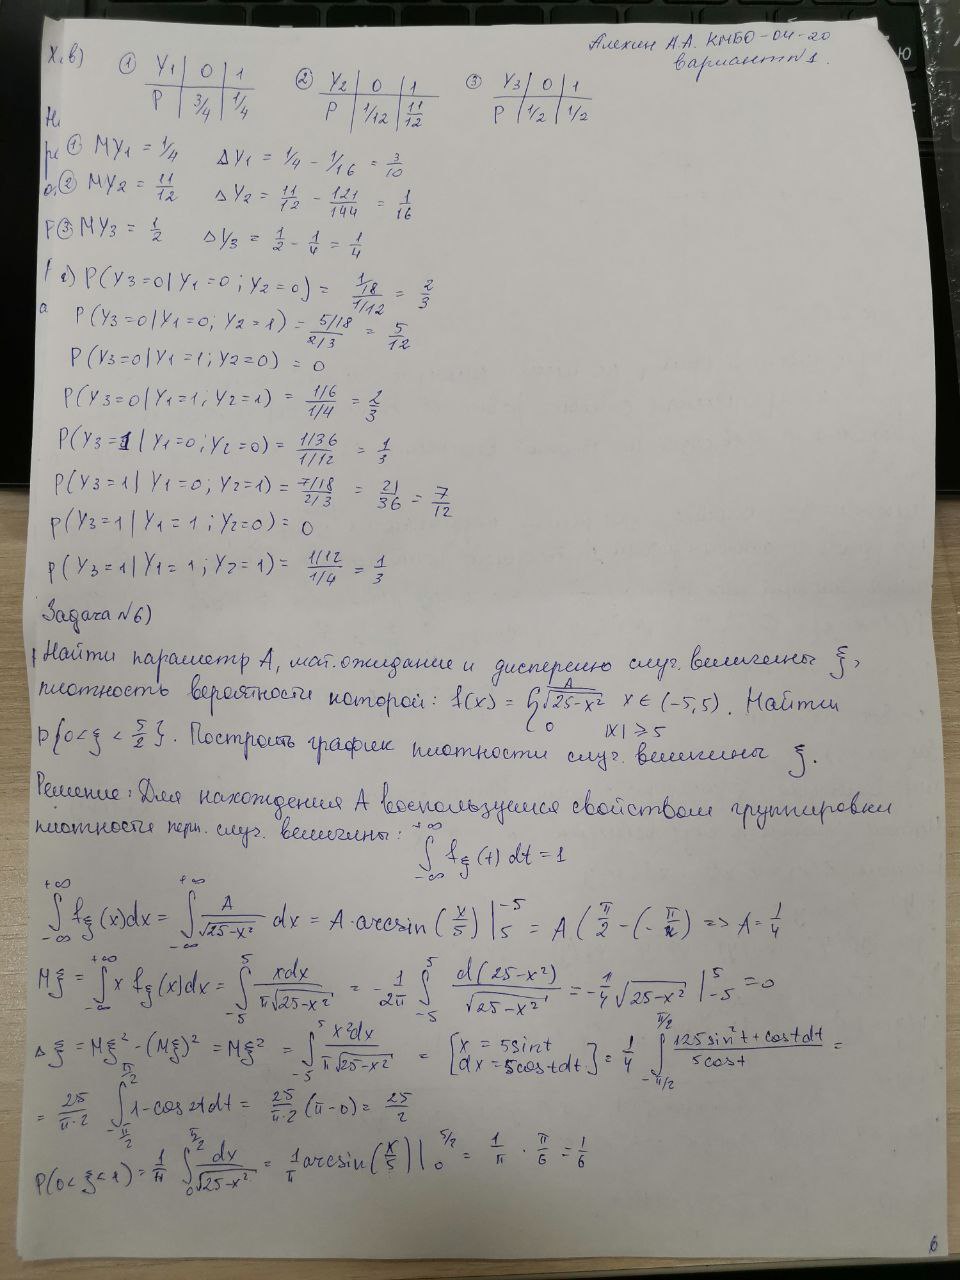 Алехин А.А. КМБО-04-20
Вариант №1.
X. в)
① Y₁ | 0 | 1
P | 3/4 | 1/4
② Y₂ | 0 | 1
P | 1/12 | 11/12
③ Y₃ | 0 | 1
P | 1/2 | 1/2
① MY₁ = 1/4 ΔY₁ = 1/4 - 1/16 = 3/10
② MY₂ = 11/12 ΔY₂ = 11/12 - 121/144 = 1/16
③ MY₃ = 1/2 ΔY₃ = 1/2 - 1/4 = 1/4
г) P(Y₃=0|Y₁=0; Y₂=0) = (1/18)/(1/12) = 2/3
P(Y₃=0|Y₁=0; Y₂=1) = (5/18)/(2/3) = 5/12
P(Y₃=0|Y₁=1; Y₂=0) = 0
P(Y₃=0|Y₁=1; Y₂=1) = (1/6)/(1/4) = 2/3
P(Y₃=1|Y₁=0; Y₂=0) = (1/36)/(1/12) = 1/3
P(Y₃=1|Y₁=0; Y₂=1) = (7/18)/(2/3) = 21/36 = 7/12
P(Y₃=1|Y₁=1; Y₂=0) = 0
P(Y₃=1|Y₁=1; Y₂=1) = (1/12)/(1/4) = 1/3
Задача №6)
Найти параметр A, мат. ожидание и дисперсию случ. величины ξ,
плотность вероятности которой: f(x) = { A/√(25-x²) x ∈ (-5,5) . Найти
0 |x| ≥ 5
P{0<ξ<5/2}. Построить график плотности случ. величины ξ.
Решение: Для нахождения A воспользуемся свойством группировки
плотности случ. величины:
∫_{-∞}^{+∞} f_ξ(t) dt = 1
∫_{-∞}^{+∞} f_ξ(x)dx = ∫_{-∞}^{+∞} A/√(25-x²) dx = A·arcsin(x/5)|_{5}^{-5} = A(π/2-(-π/2) => A = 1/4
Mξ = ∫_{-∞}^{+∞} x f_ξ(x)dx = ∫_{-5}^{5} xdx/(π√(25-x²)) = -1/2π ∫_{-5}^{5} d(25-x²)/√(25-x²) = -1/4 √(25-x²)|_{-5}^{5} = 0
Δξ = Mξ² - (Mξ)² = Mξ² = ∫_{-5}^{5} x²dx/(π√(25-x²)) = [x = 5sint dx = 5costdt] = 1/4 ∫_{-π/2}^{π/2} 125sin²t+costdt/5cost =
= 25/π·2 ∫_{-π/2}^{π/2} 1-cos2tdt = 25/π·2 (π-0) = 25/2
P(0<ξ<1) = 1/π ∫_{0}^{π/2} dx/√(25-x²) = 1/π arcsin(x/5)|_{0}^{5/2} = 1/π · π/6 = 1/6
6